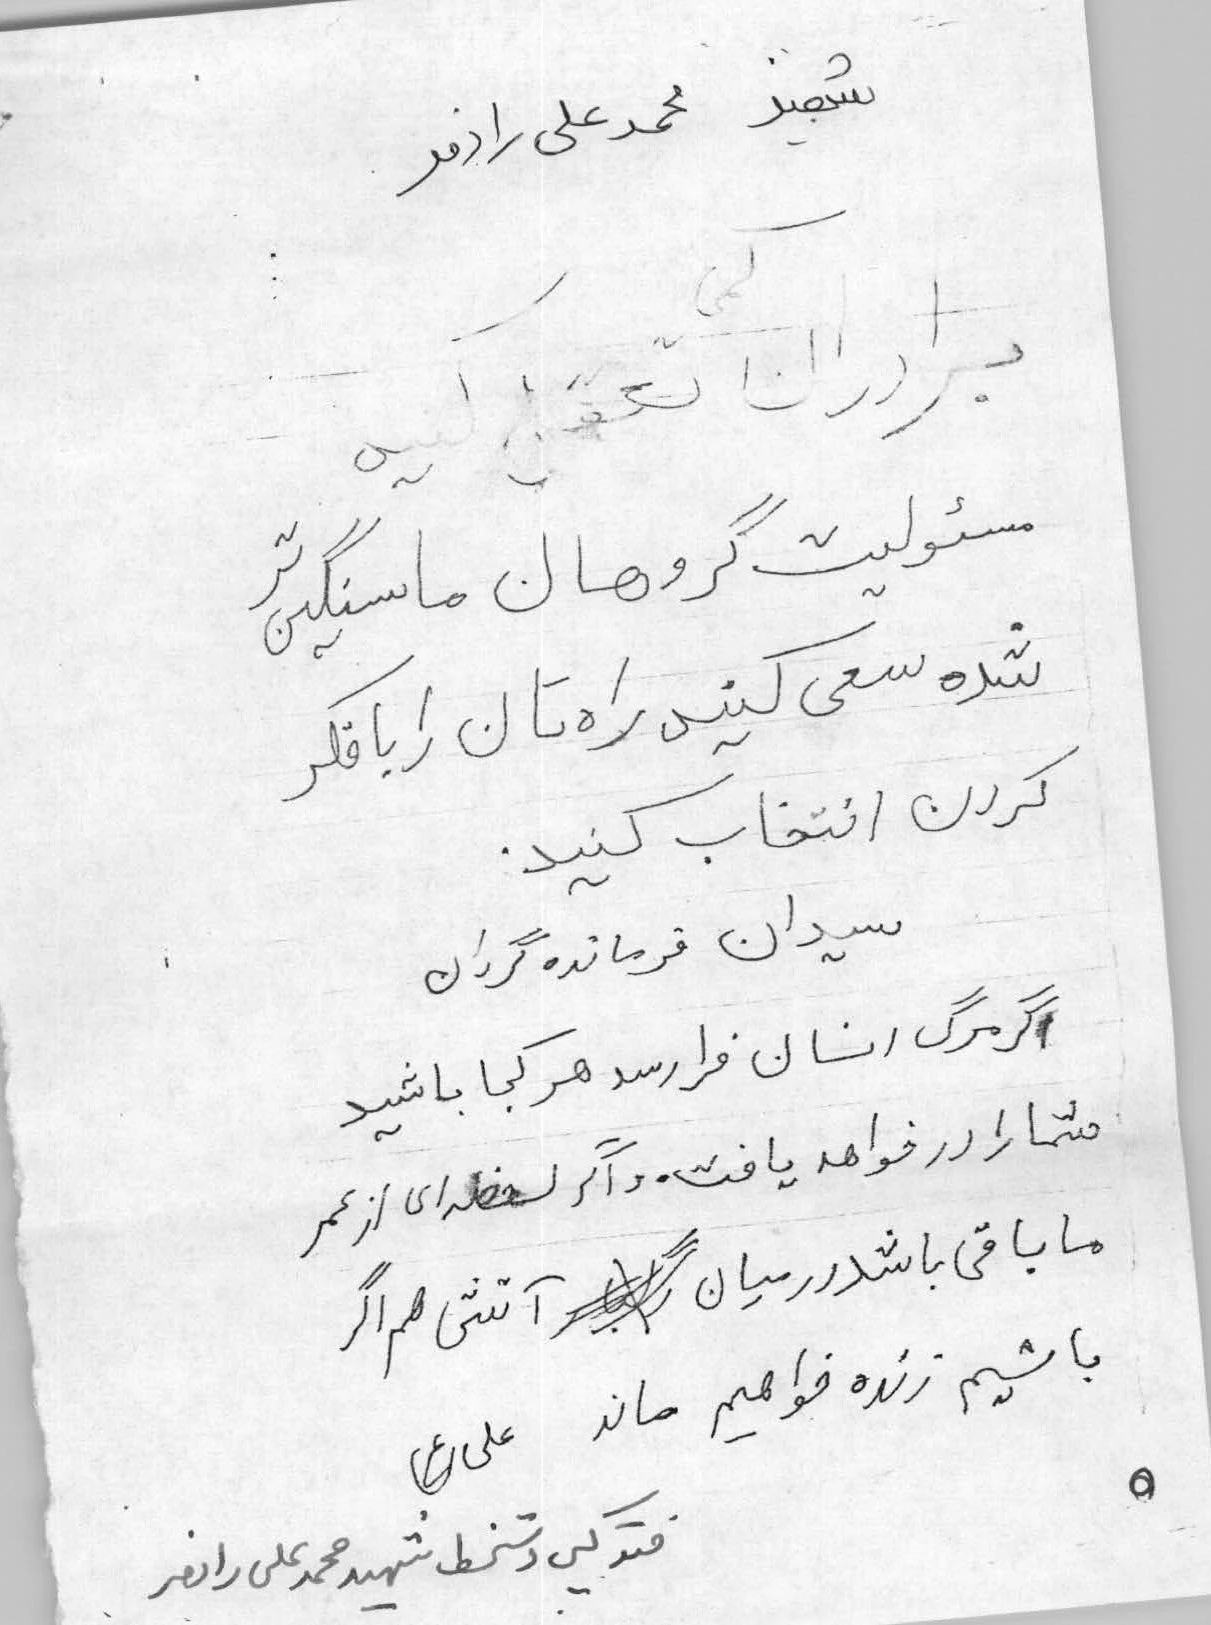 شهید محمد علی رادفر
کمی
برادران تعقل کنید
مسئولیت گروهان ما سنگین تر
شده سعی کنید راه تان را با فکر
کردن انتخاب کنید.
سیدان فرمانده گردان
اگر مرگ انسان فرا رسد هر کجا باشید
شما را در خواهد یافت. و اگر لحظه ای از عمر
ما باقی باشد در میان آتش هم اگر
باشیم زنده خواهیم ماند علی (ع)
فتوکپی دستخط شهید محمد علی رادفر
۵